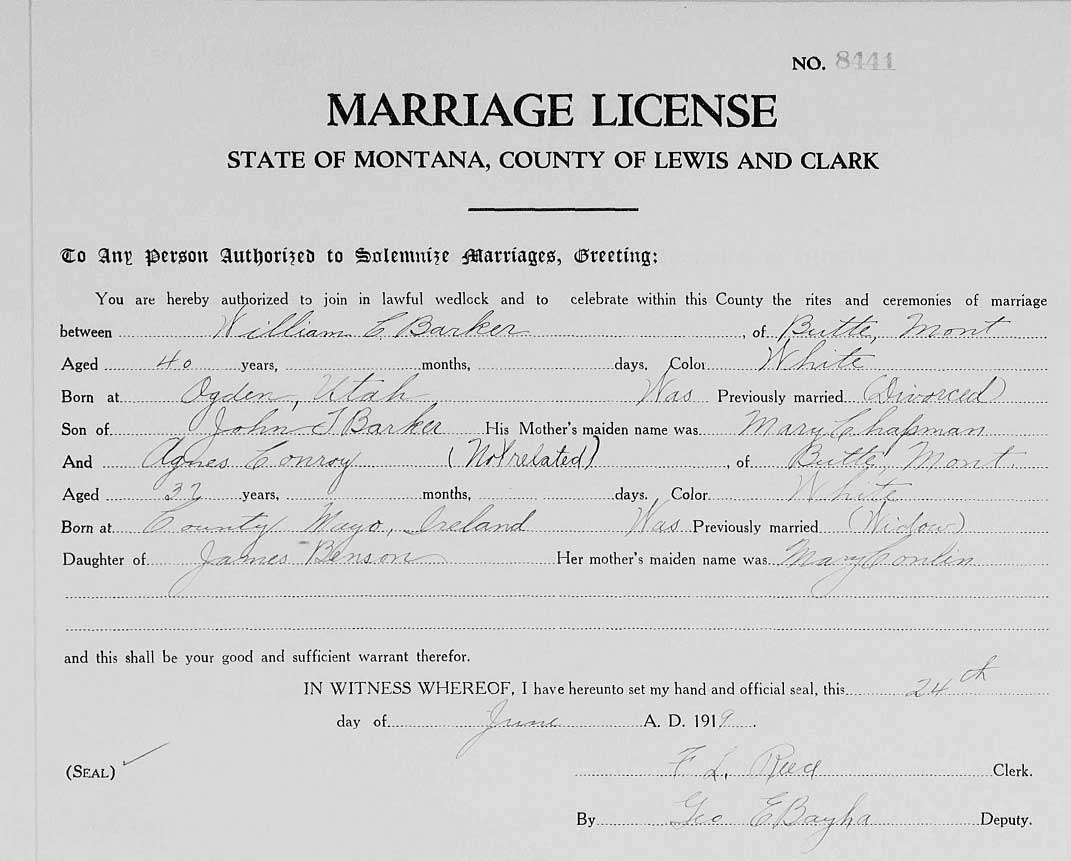 NO. 8441
MARRIAGE LICENSE
STATE OF MONTANA, COUNTY OF LEWIS AND CLARK
To Any Person Authorized to Solemnize Marriages, Greeting:
You are hereby authorized to join in lawful wedlock and to celebrate within this County the rites and ceremonies of marriage
between William C Barker, of Butte, Mont
Aged 40 years, months, days, Color White
Born at Ogden, Utah Was Previously married (Divorced)
Son of John T Barker His Mother's maiden name was Mary Chapman
And Agnes Conroy (Not related), of Butte, Mont.
Aged 32 years, months, days, Color White
Born at County Mayo, Ireland Was Previously married (Widow)
Daughter of James Benson Her mother's maiden name was Mary Conlin
and this shall be your good and sufficient warrant therefor.
IN WITNESS WHEREOF, I have hereunto set my hand and official seal, this 24th
day of June A. D. 1919.
(SEAL) F L. Reed Clerk.
By Geo E Bayha Deputy.